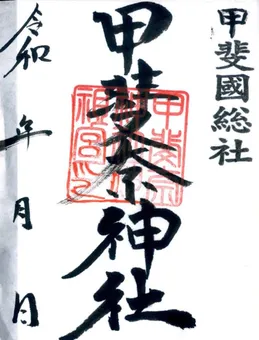 甲斐國総社
甲斐奈神社
令和 年 月 日